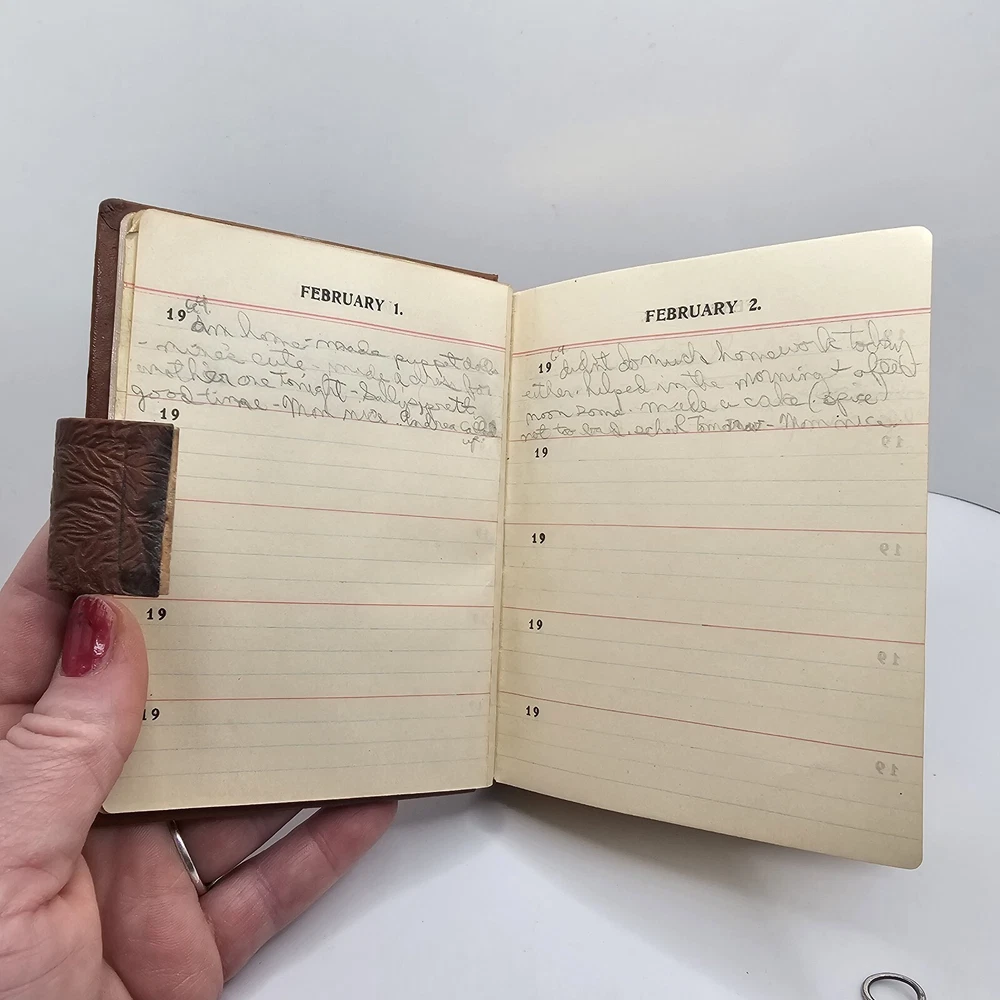 FEBRUARY 1.
19 64.
Am home - made puppet dolls
- mine's cute - made a dress for
another one tonight - Babysat
good time - Mom nice. Andrea called
up
19
19
19
19
FEBRUARY 2.
19 64
didnt do much homework today
either. helped in the morning + after
noon some. made a cake (spice)
not to bad. school tomorrow - Mom nice.
19
19
19
19